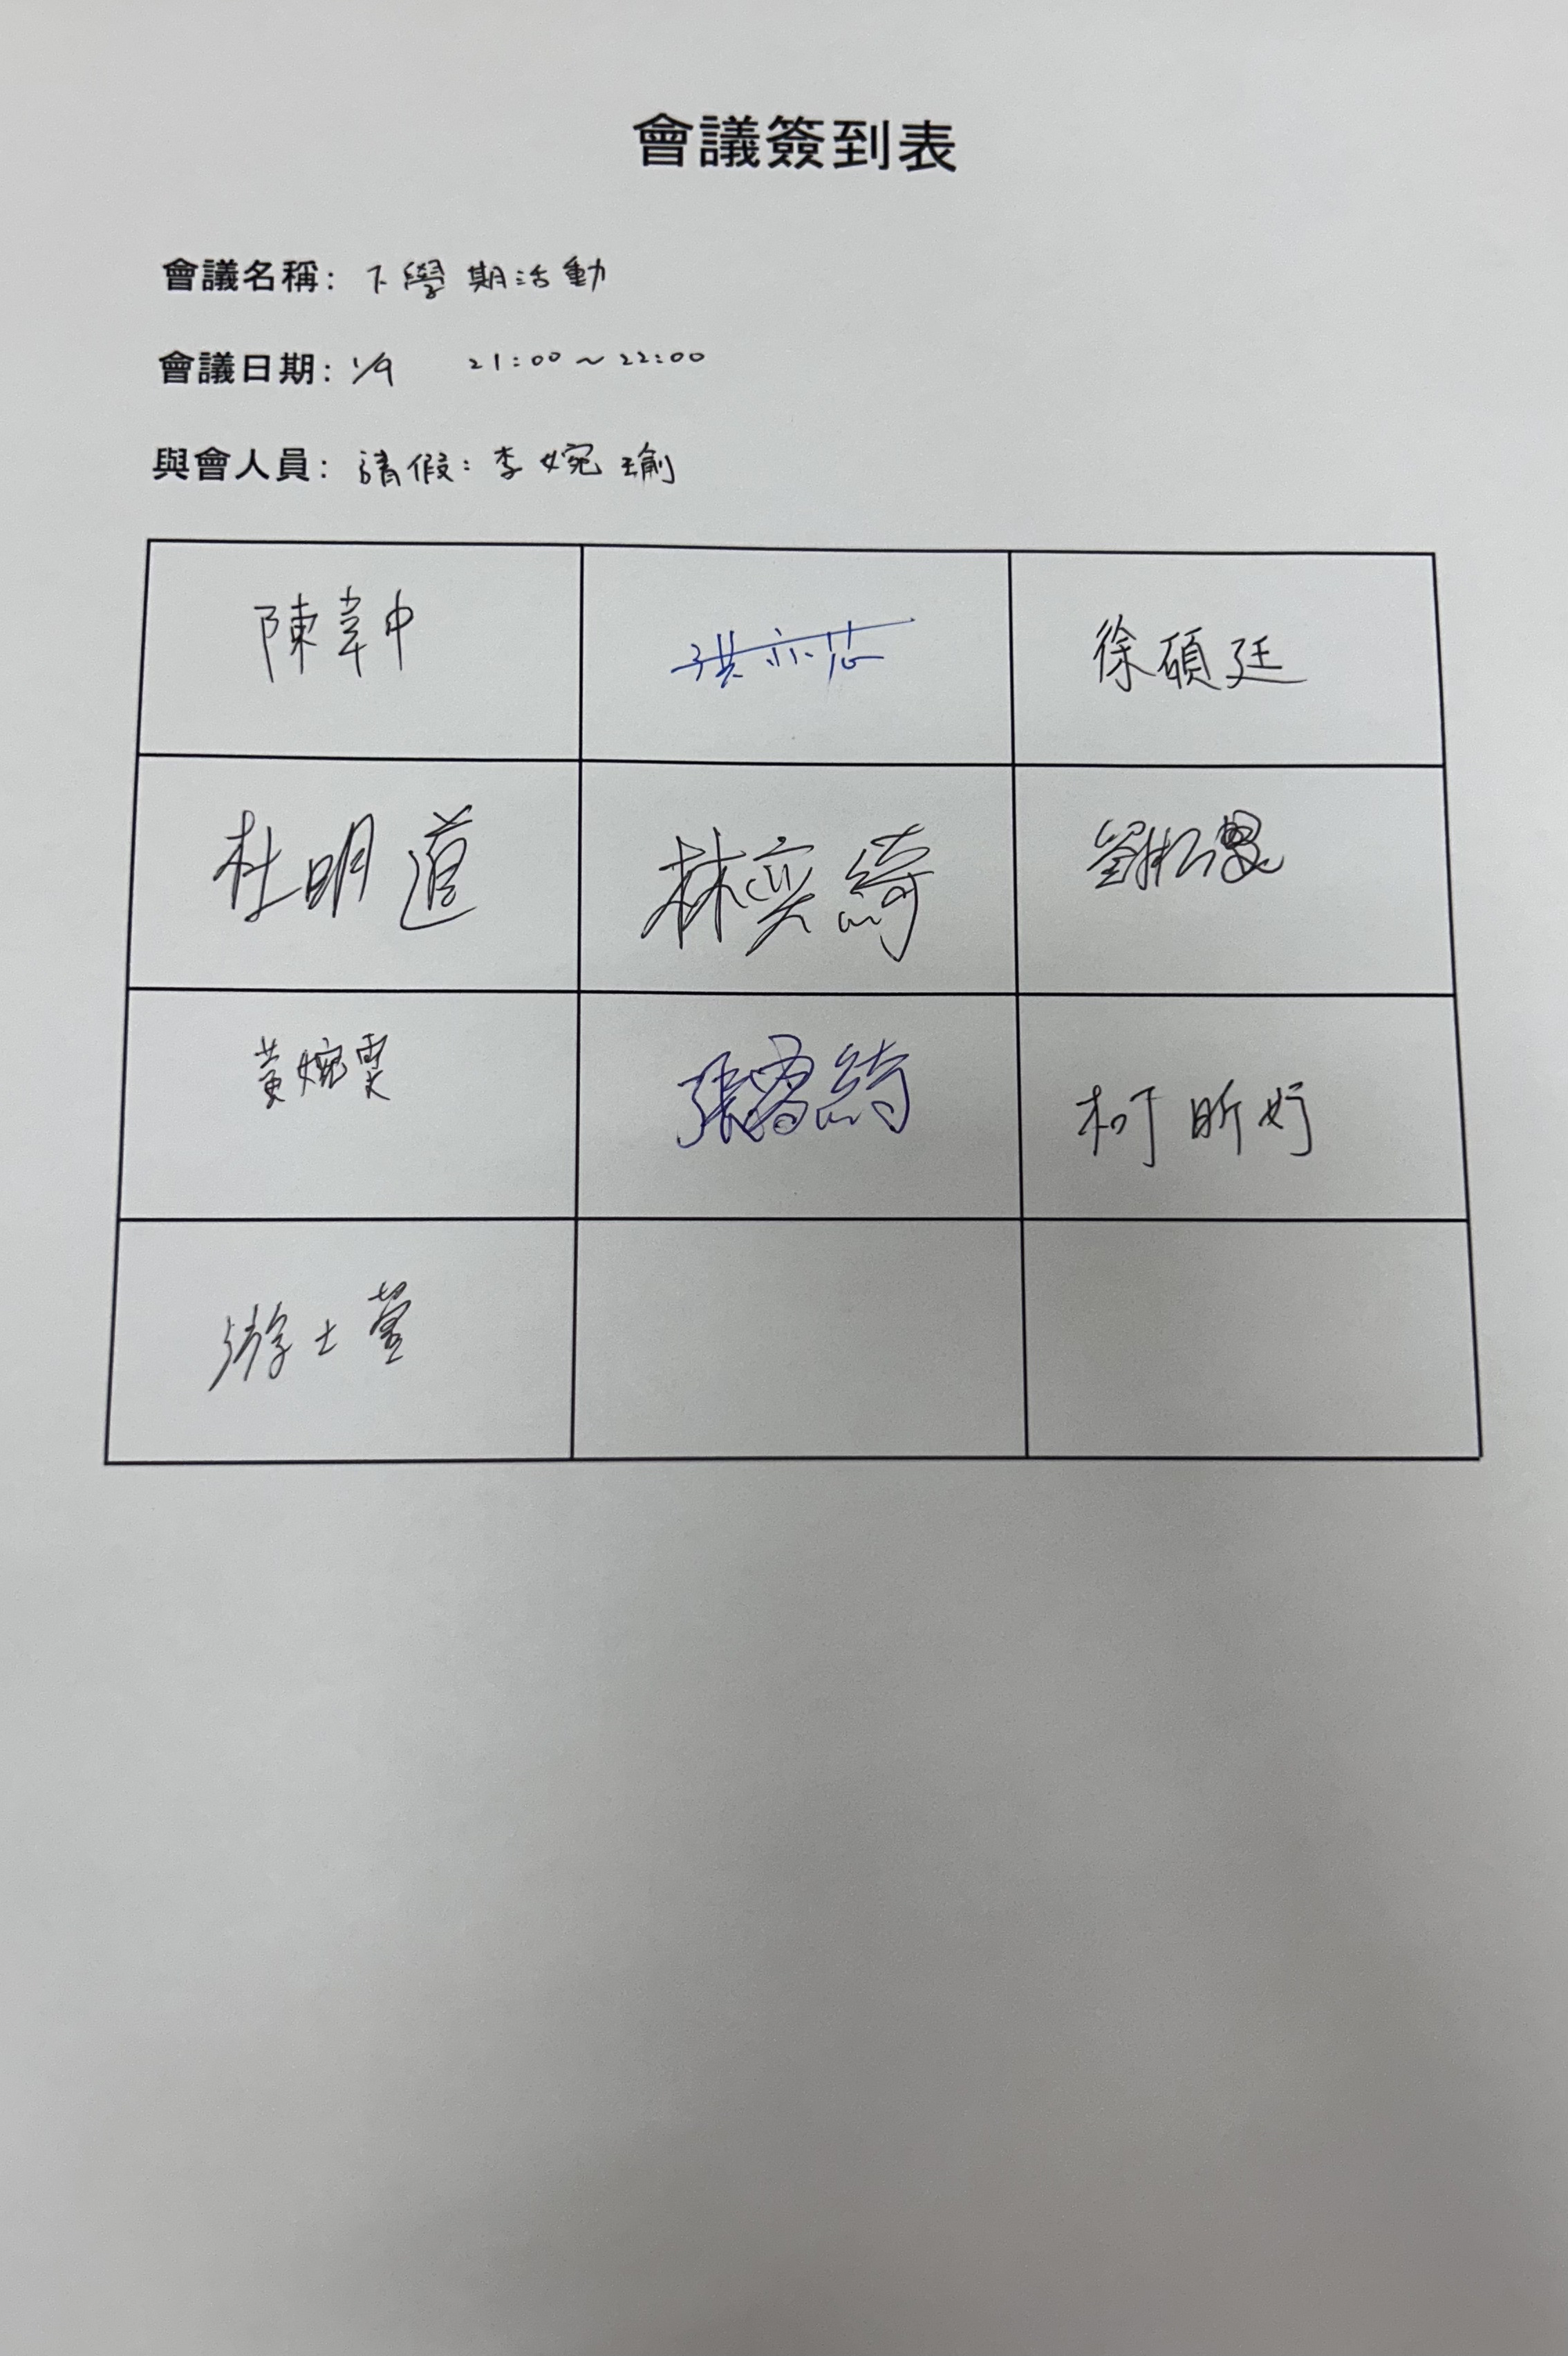 會議簽到表
會議名稱: 下學期活動
會議日期: 1/9 21:00~22:00
與會人員: 請假: 李婉瑜
陳韋中 洪亦芯 徐碩廷
杜明道 林奕綺 劉
黃婉雯 張喬綺 柯昕妤
游士萱